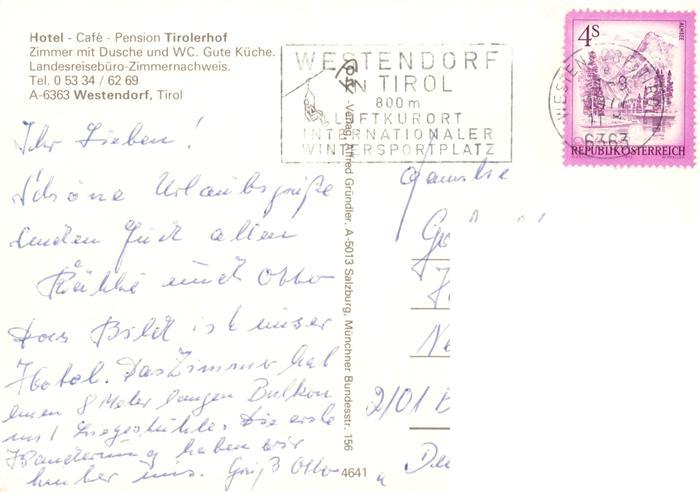 Hotel - Café - Pension Tirolerhof
Zimmer mit Dusche und WC. Gute Küche.
Landesreisebüro-Zimmernachweis.
Tel. 0 53 34 / 62 69
A-6363 Westendorf, Tirol
WESTENDORF
IN TIROL
800 m
LUFTKURORT
INTERNATIONALER
WINTERSPORTPLATZ
4S
ALMSEE
6363
REPUBLIK ÖSTERREICH
Ihr Lieben!
Schöne Urlaubsgrüße
senden Euch allen
Käthe und Otto
Das Bild ist unser
Hotel. Das Zimmer hat
einen 8 Meter langen Balkon
mit Liegestühle. Die erste
Wanderung haben wir
hinter uns. Gruß Otto
-Verlag Alfred Gründler, A-5013 Salzburg, Münchner Bundesstr. 156
4641
Familie
2/01